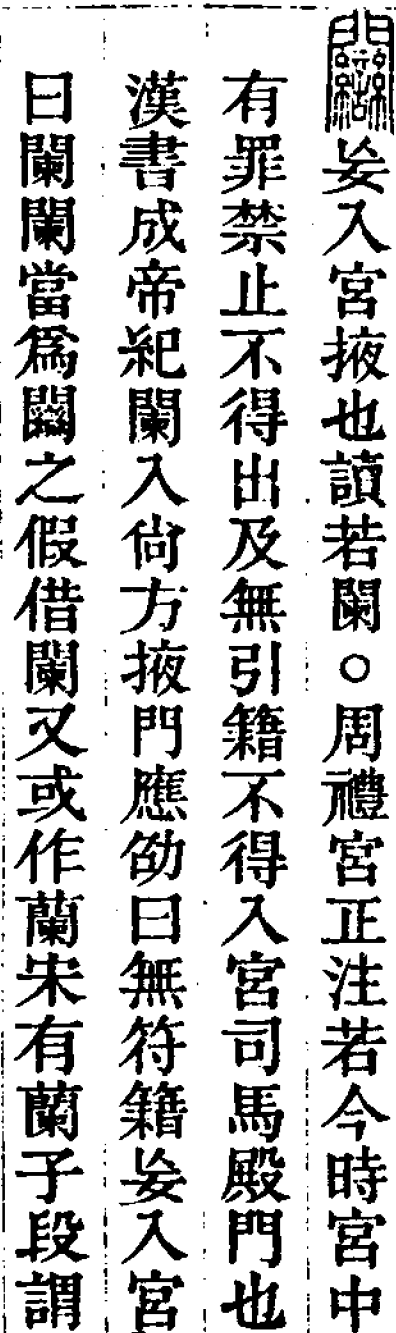 𨷻妄入宮掖也讀若闌○周禮宮正注若今時宮中
有罪禁止不得出及無引籍不得入宮司馬殿門也
漢書成帝紀闌入尙方掖門應劭曰無符籍妄入宮
曰闌闌當爲𨷻之假借闌又或作蘭宋有蘭子段謂